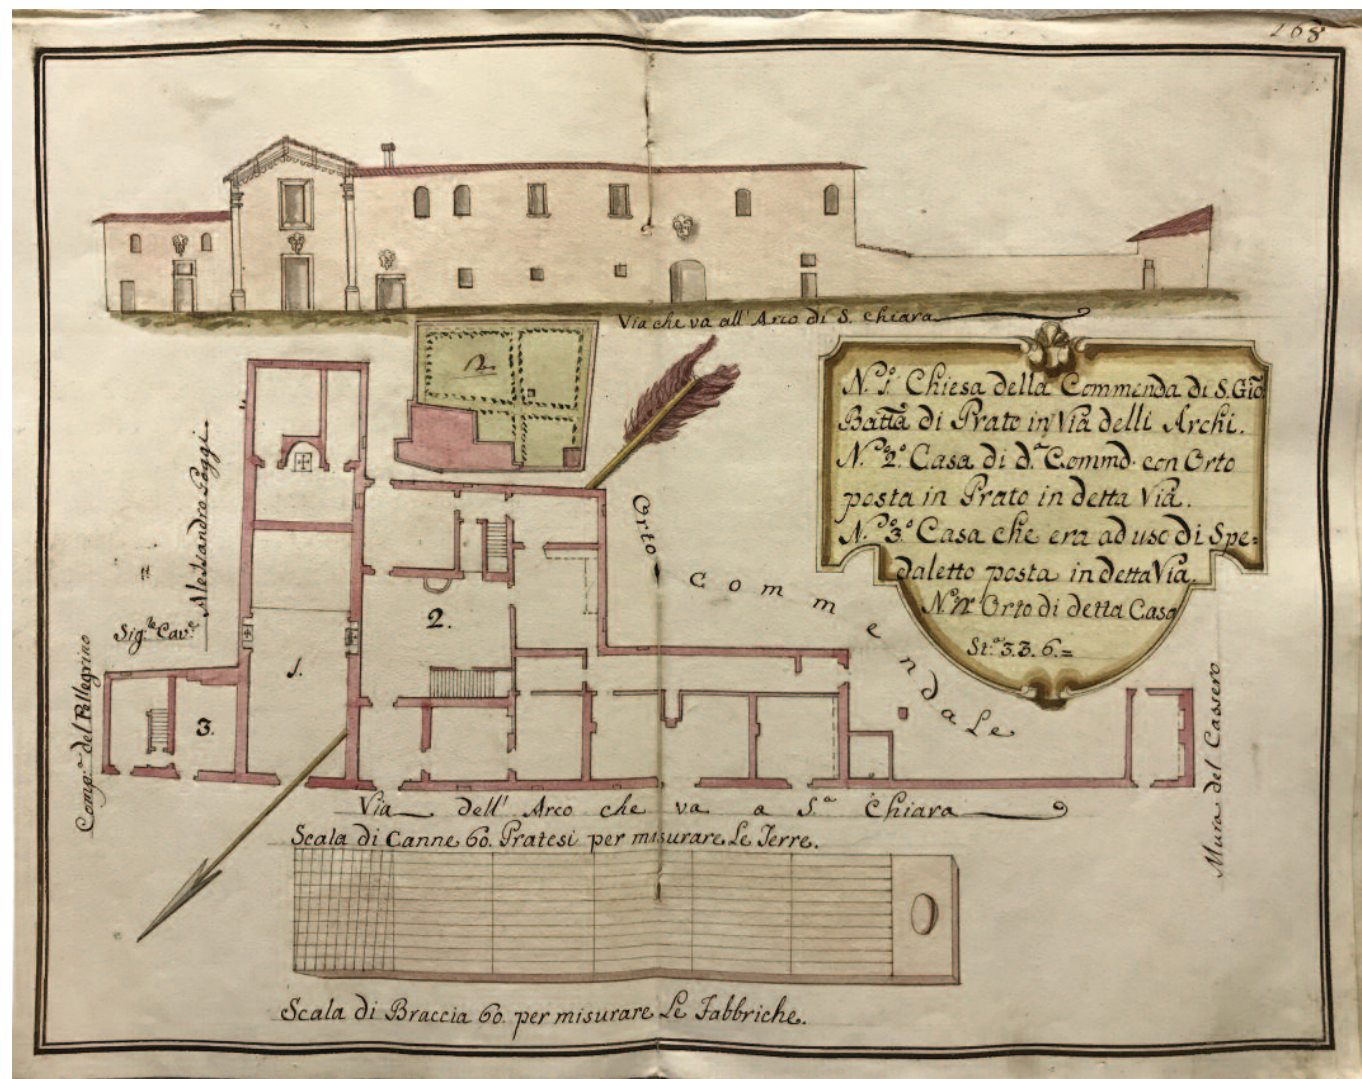 168
Via che va all' Arco di S. Chiara
N.º 1.º Chiesa della Commenda di S. Gio
Batta di Prato in Via delli Archi.
N.º 2.º Casa di d.ª Commd. con Orto
posta in Prato in detta Via.
N.º 3.º Casa che era ad uso di Spe=
daletto posta in detta Via.
Orto di detta Casa
St.ª 3. 3. 6.=
Orto Commendale
Alessandro Poggi
Sig.re Cav.e
Comp.a del Pellegrino
1.
2.
3.
Mura del Cassero
Via dell' Arco che va a S.a Chiara
Scala di Canne 60. Pratesi per misurare Le Terre.
Scala di Braccia 60. per misurare Le Fabbriche.